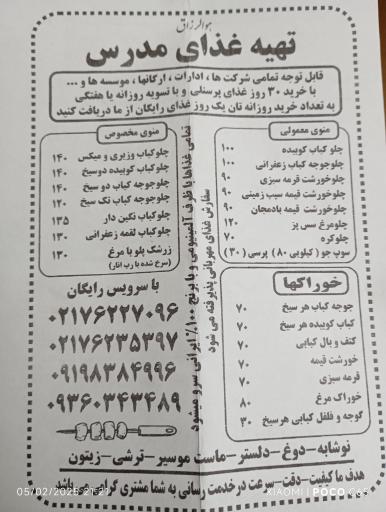 هوالرزاق
تهیه غذای مدرس
قابل توجه تمامی شرکت ها ، ادارات ، ارگانها ، موسسه ها و ...
با خرید ۳۰ روز غذای پرسنلی و با تسویه روزانه یا هفتگی
به تعداد خرید روزانه تان یک روز غذای رایگان از ما دریافت کنید
منوی معمولی
چلو کباب کوبیده ۱۰۰
چلوجوجه کباب زعفرانی ۱۰۰
چلوخورشت قرمه سبزی ۹۰
چلوخورشت قیمه سیب زمینی ۹۰
چلوخورشت قیمه بادمجان ۹۰
چلومرغ سس پز ۱۲۰
چلوکره ۷۰
سوپ جو ( کیلویی ۸۰ ) پرسی ( ۳۰ )
منوی مخصوص
چلوکباب وزیری و میکس ۱۴۰
چلوکباب کوبیده دوسیخ ۱۴۰
چلوجوجه کباب دو سیخ ۱۴۰
چلوجوجه کباب تک سیخ ۱۲۰
چلوکباب نگین دار ۱۳۵
چلوکباب لقمه زعفرانی ۱۳۰
زرشک پلو با مرغ ۱۳۰
(سرخ شده با رب انار)
تمامی غذاها با ظرف آلمینیومی و با برنج ۱۰۰٪ ایرانی سرو میشود
سفارش غذای مهربانی پذیرفته می شود
خوراکها
جوجه کباب هر سیخ ۷۰
کباب کوبیده هر سیخ ۷۰
کتف و بال کبابی ۷۰
خورشت قیمه ۷۰
قرمه سبزی ۷۰
خوراک مرغ ۸۰
گوجه و فلفل کبابی هرسیخ ۳۰
با سرویس رایگان
۰۲۱۷۶۲۲۷۰۹۶
۰۲۱۷۶۲۳۵۳۹۷
۰۹۱۹۸۳۸۴۹۹۶
۰۹۳۶۰۳۴۳۴۸۹
نوشابه - دوغ - دلستر - ماست موسیر - ترشی - زیتون
هدف ما کیفیت - دقت - سرعت در خدمت رسانی به شما مشتری گرامی می باشد
05/02/2025 21:21
XIAOMI | POCO C65